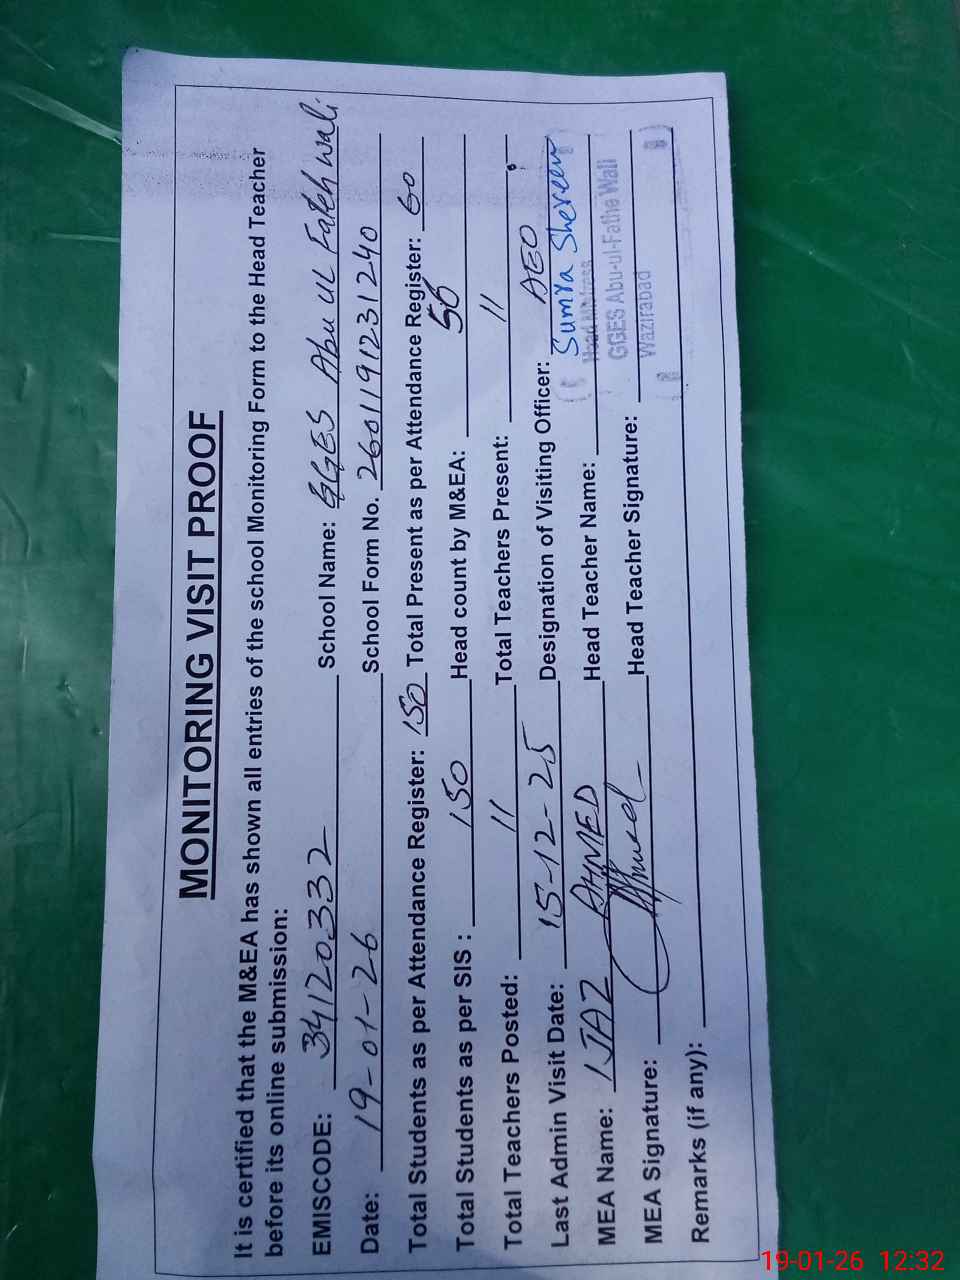 MONITORING VISIT PROOF
It is certified that the M&EA has shown all entries of the school Monitoring Form to the Head Teacher
before its online submission:
EMISCODE: 34120332 School Name: GGES Abu ul Fateh wali
Date: 19-01-26 School Form No. 2601191231240
Total Students as per Attendance Register: 150 Total Present as per Attendance Register: 60
Total Students as per SIS : 150 Head count by M&EA: 56
Total Teachers Posted: 11 Total Teachers Present: 11
Last Admin Visit Date: 15-12-25 Designation of Visiting Officer: AEO
MEA Name: IJAZ AHMED Head Teacher Name: Sumra Shereen
MEA Signature: Ahmed Head Teacher Signature:
Head Mistress
GGES Abu-ul-Fathe Wali
Wazirabad
Remarks (if any):
19-01-26 12:32